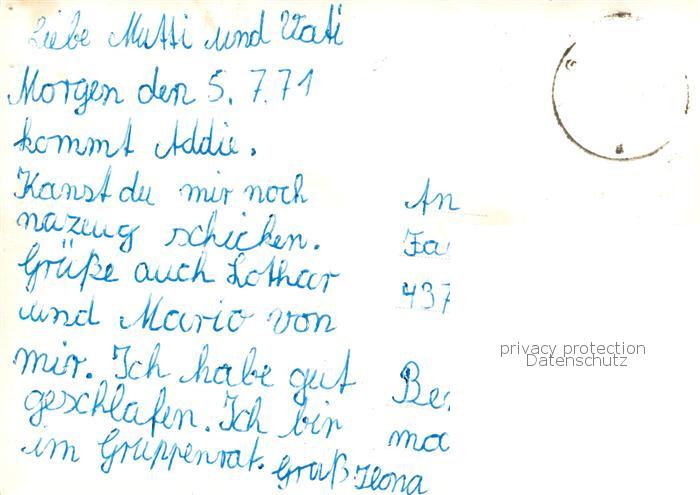 Liebe Mutti und Vati
Morgen den 5.7.71
kommt Addie.
Kanst du mir noch
nazeug schicken.
Grüße auch Lothar
und Mario von
mir. Ich habe gut
geschlafen. Ich bin
im Gruppenrat.
Gruß Ilona
An
Fa
437
Be
ma
privacy protection
Datenschutz